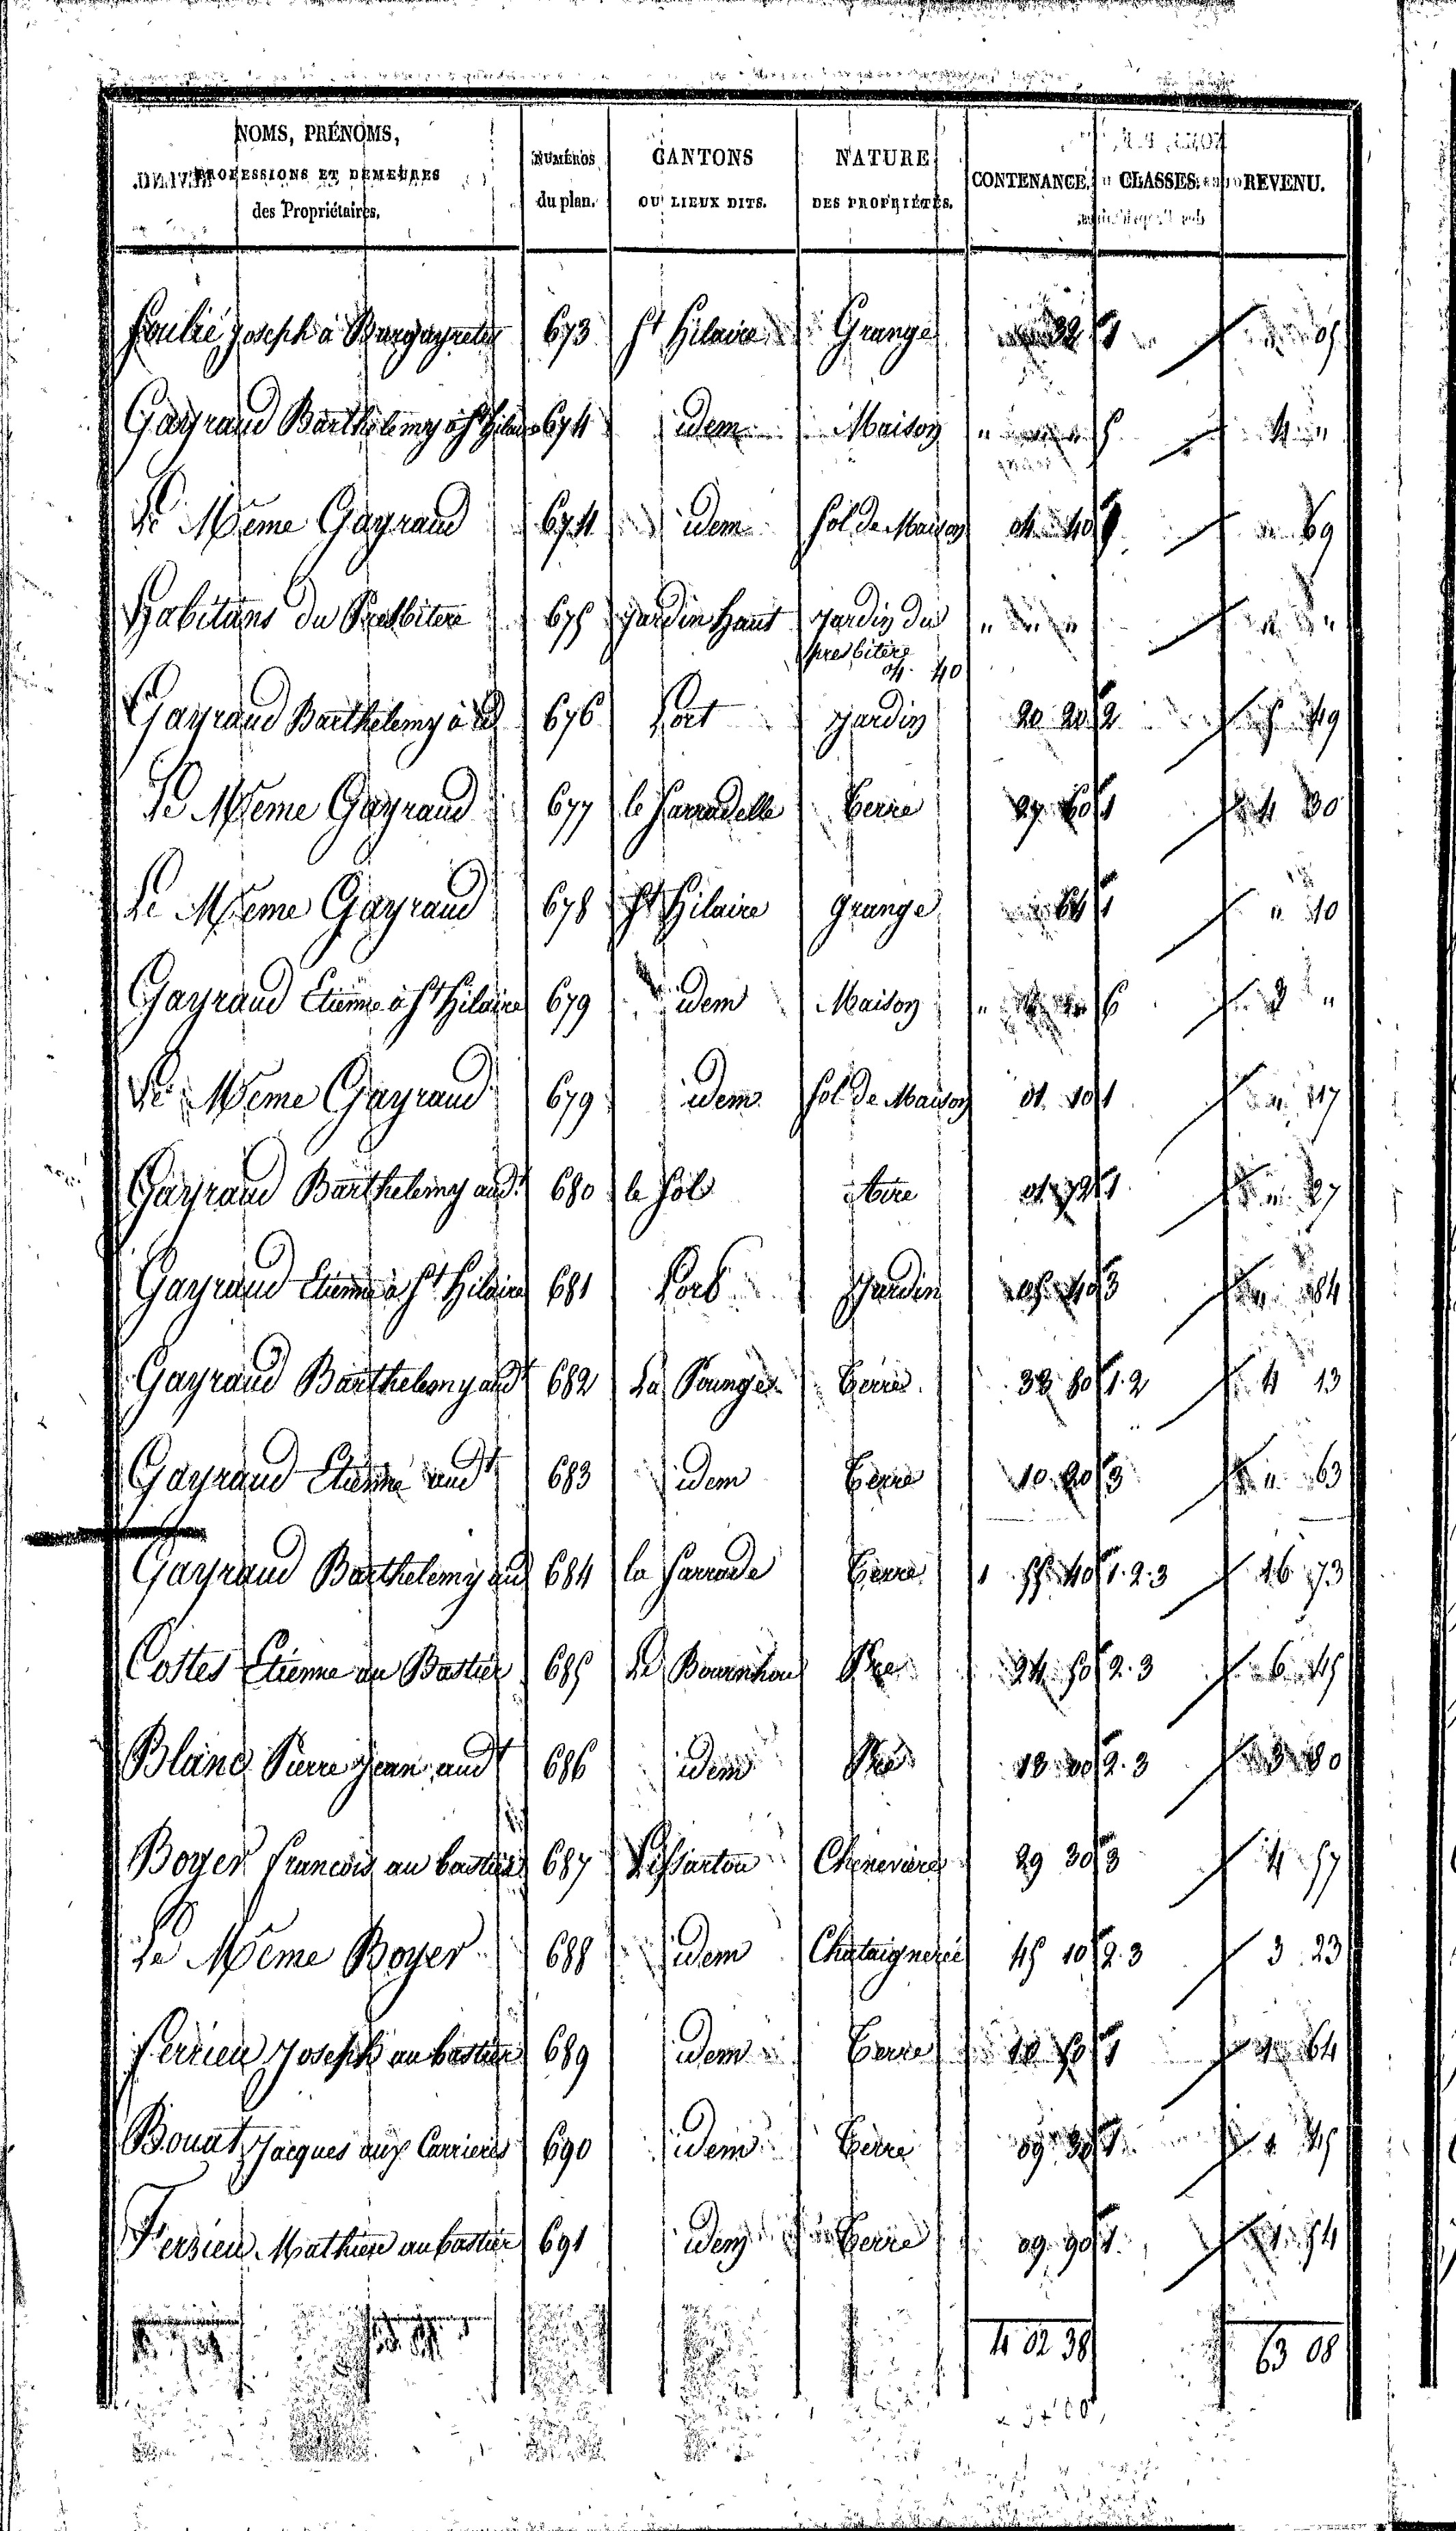 NOMS, PRÉNOMS, PROFESSIONS ET DEMEURES des Propriétaires. NUMÉROS du plan. CANTONS OU LIEUX DITS. NATURE DES PROPRIÉTÉS. CONTENANCE. CLASSES. REVENU.
Joseph à 673 St Hilaire Grange 32 1 05
Gayraud Barthelemy à St Hilaire 674 idem Maison " " 5 4 "
Le Même Gayraud 674 idem Sol de Maison 04 40 " 69
Habitans du Presbitere 675 Jardin Haut Jardin du " " " "
presbitère
04. 40
Gayraud Barthelemy à 676 Port Jardin 20 20 2 5 49
Le Même Gayraud 677 le Terre 27 60 1 4 30
Le Même Gayraud 678 St Hilaire Grange 64 1 " 10
Gayraud Etienne à St Hilaire 679 idem Maison " 6 "
Le Même Gayraud 679 idem Sol de Maison 01 10 1 " 17
Gayraud Barthelemy audt 680 le Sol Aire 01 72 1 " 27
Gayraud Etienne à St Hilaire 681 Jardin 05 40 3 " 84
Gayraud Barthelemy audt 682 La Terre 33 80 1.2 4 13
Gayraud Etienne audt 683 idem Terre 10 20 3 " 63
Gayraud Barthelemy aud 684 la Terre 1 55 40 1.2.3 16 73
Costes Etienne au Bastier 685 Le Bournhou Pre 24 50 2.3 6 45
Blanc Pierre Jean audt 686 idem Pré 18 00 2.3 3 80
Boyer Francois au bastier 687 Cheneviere 29 30 3 4 57
Le Même Boyer 688 idem Chataignerée 45 10 2.3 3 23
Ferrieu Joseph au bastier 689 idem Terre 10 50 1 1 64
Bouat Jacques aux Carrieres 690 idem Terre 09 30 1 1 45
Ferrieu Mathieu au bastier 691 idem Terre 09 90 1 1 54
4 02 38 63 08